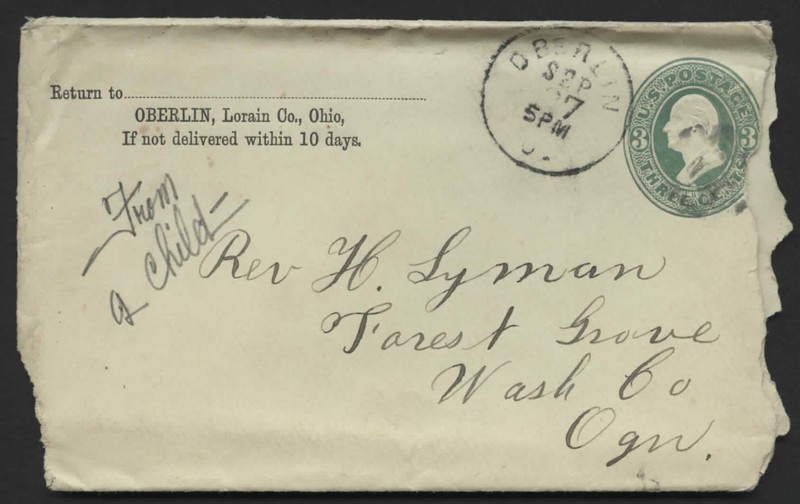 Return to
OBERLIN, Lorain Co., Ohio,
If not delivered within 10 days.
OBERLIN
SEP
5PM
O.
U.S. POSTAGE
3 3
THREE CENTS
From
a child
Rev H. Lyman
Forest Grove
Wash Co
Ogn.